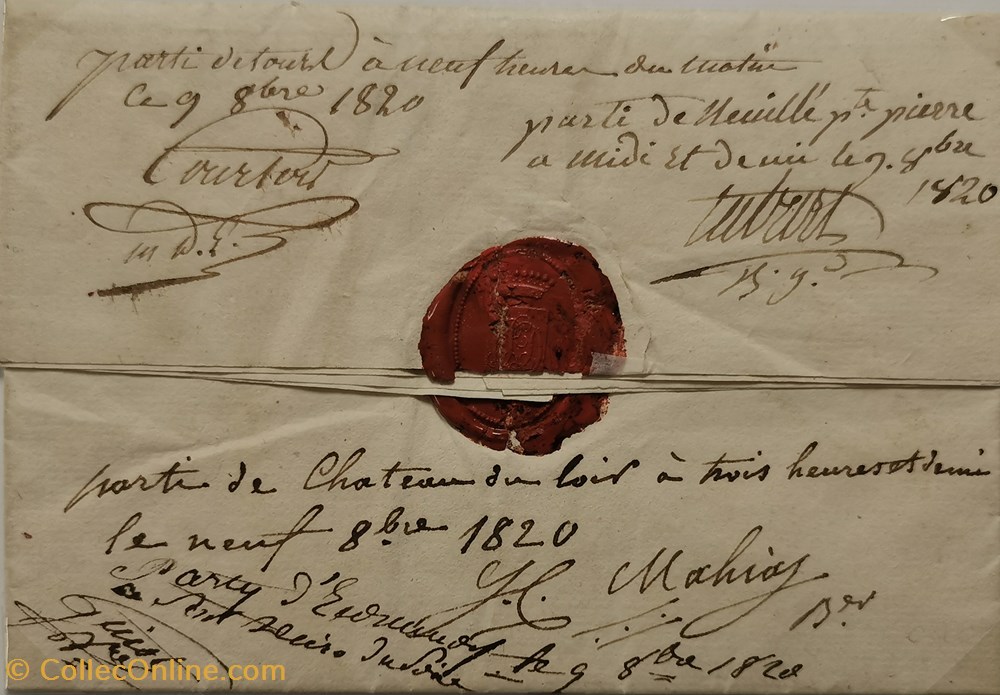 parti de tours à neuf heures du matin
Ce 9 8bre 1820
parti de Neuillé pte pierre
a midi Et demie le 9. 8bre
1820
B. g.d
parti de Chateau du loir à trois heures et demi
le neuf 8.bre 1820
J.C. Mahias
B.er
Party d'Ecommoy le 9 8bre 1820
a Sept heures du Soir
© CollecOnline.com